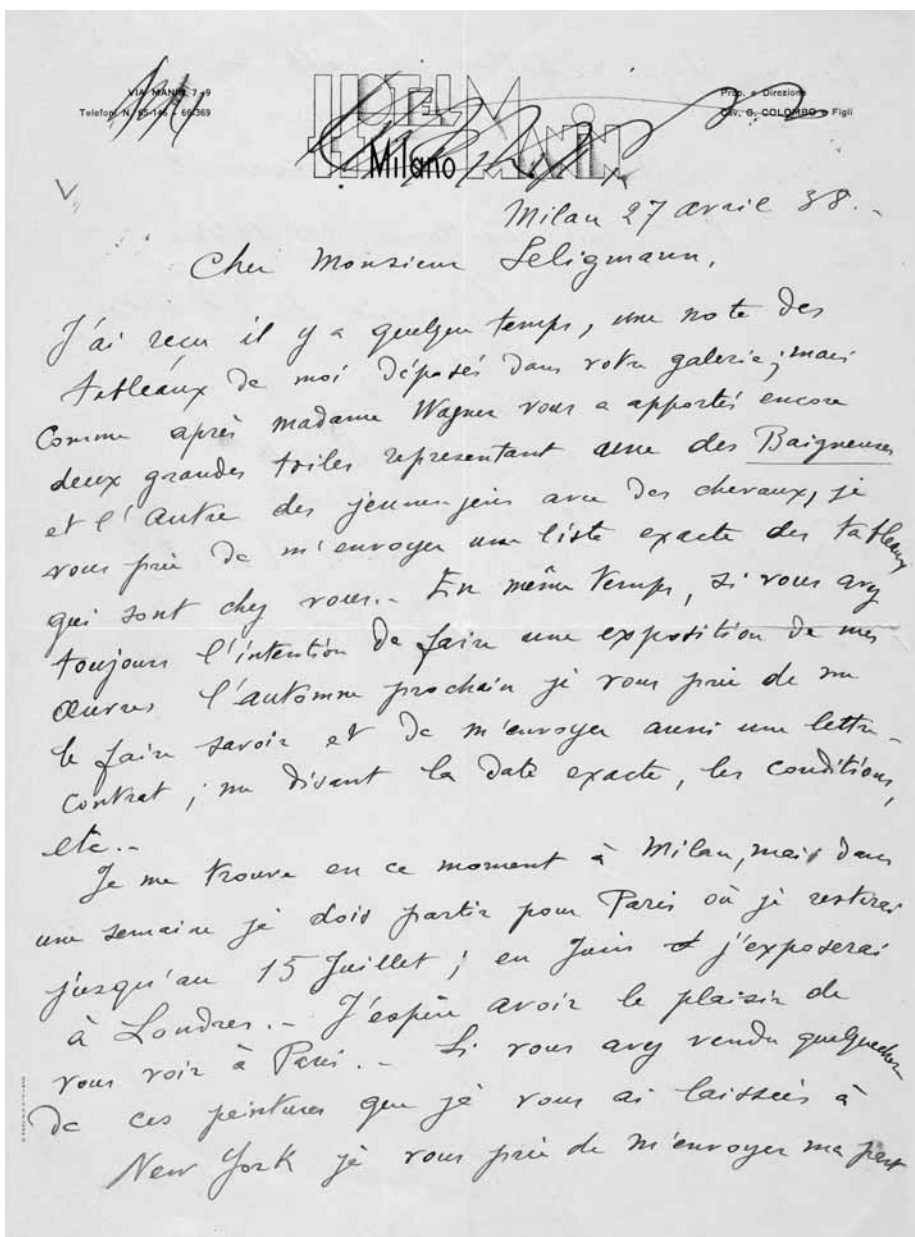 VIA MANIN, 7-9
Telefoni N. 65-146 - 66-369
HOTEL MANIN
Milano
Prop. e Direzione
Cav. G. COLOMBO e Figli
Milan 27 avril 38.-
Cher Monsieur Seligmann,
J'ai reçu il y a quelque temps, une note des
tableaux de moi déposés dans votre galerie; mais
comme après madame Wagner vous a apportés encore
deux grandes toiles representant une des Baigneuses
et l'autre des jeunes-gens avec des chevaux, je
vous prie de m'envoyer une liste exacte des tableaux
qui sont chez vous.- En même temps, si vous avez
toujours l'intention de faire une exposition de mes
œuvres l'automne prochain je vous prie de me
le faire savoir et de m'envoyer aussi une lettre-
contrat; me disant la date exacte, les conditions,
etc.-
Je me trouve en ce moment à Milan, mais dans
une semaine je dois partir pour Paris où je resterai
jusqu'au 15 Juillet; en Juin j'exposerai
à Londres.- J'espère avoir le plaisir de
vous voir à Paris.- Si vous avez vendu quelquechose
de ces peintures que je vous ai laissées à
New York je vous prie de m'envoyer ma part